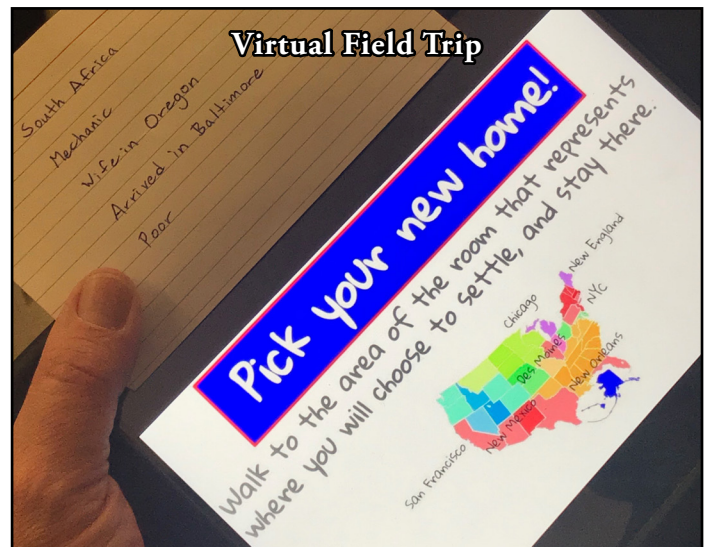 Virtual Field Trip
South Africa
Mechanic
Wife in Oregon
Arrived in Baltimore
Poor
Pick your new home!
Walk to the area of the room that represents
where you will choose to settle, and stay there.
New England
NYC
Chicago
Des Moines
New Orleans
New Mexico
San Francisco